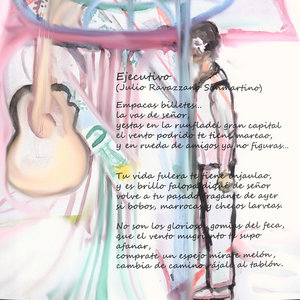 Ejecutivo
(Julio Ravazzano Sanmartino)
Empacas billetes...
la vas de señor,
yestas en la runfladel gran capital
el vento podrido te tiene mareao,
y en rueda de amigos ya no figuras...
Tu vida fulera te tiene enjaulao,
y es brillo falopa dique de señor
volve a tu pasado fragante de ayer
si bobos, marrocas y cheios larveas.
No son los glorioso gomias del feca,
que el vento mugriento te supo
afanar,
comprate un espejo mirate melón,
cambia de camino rájale al tablón.